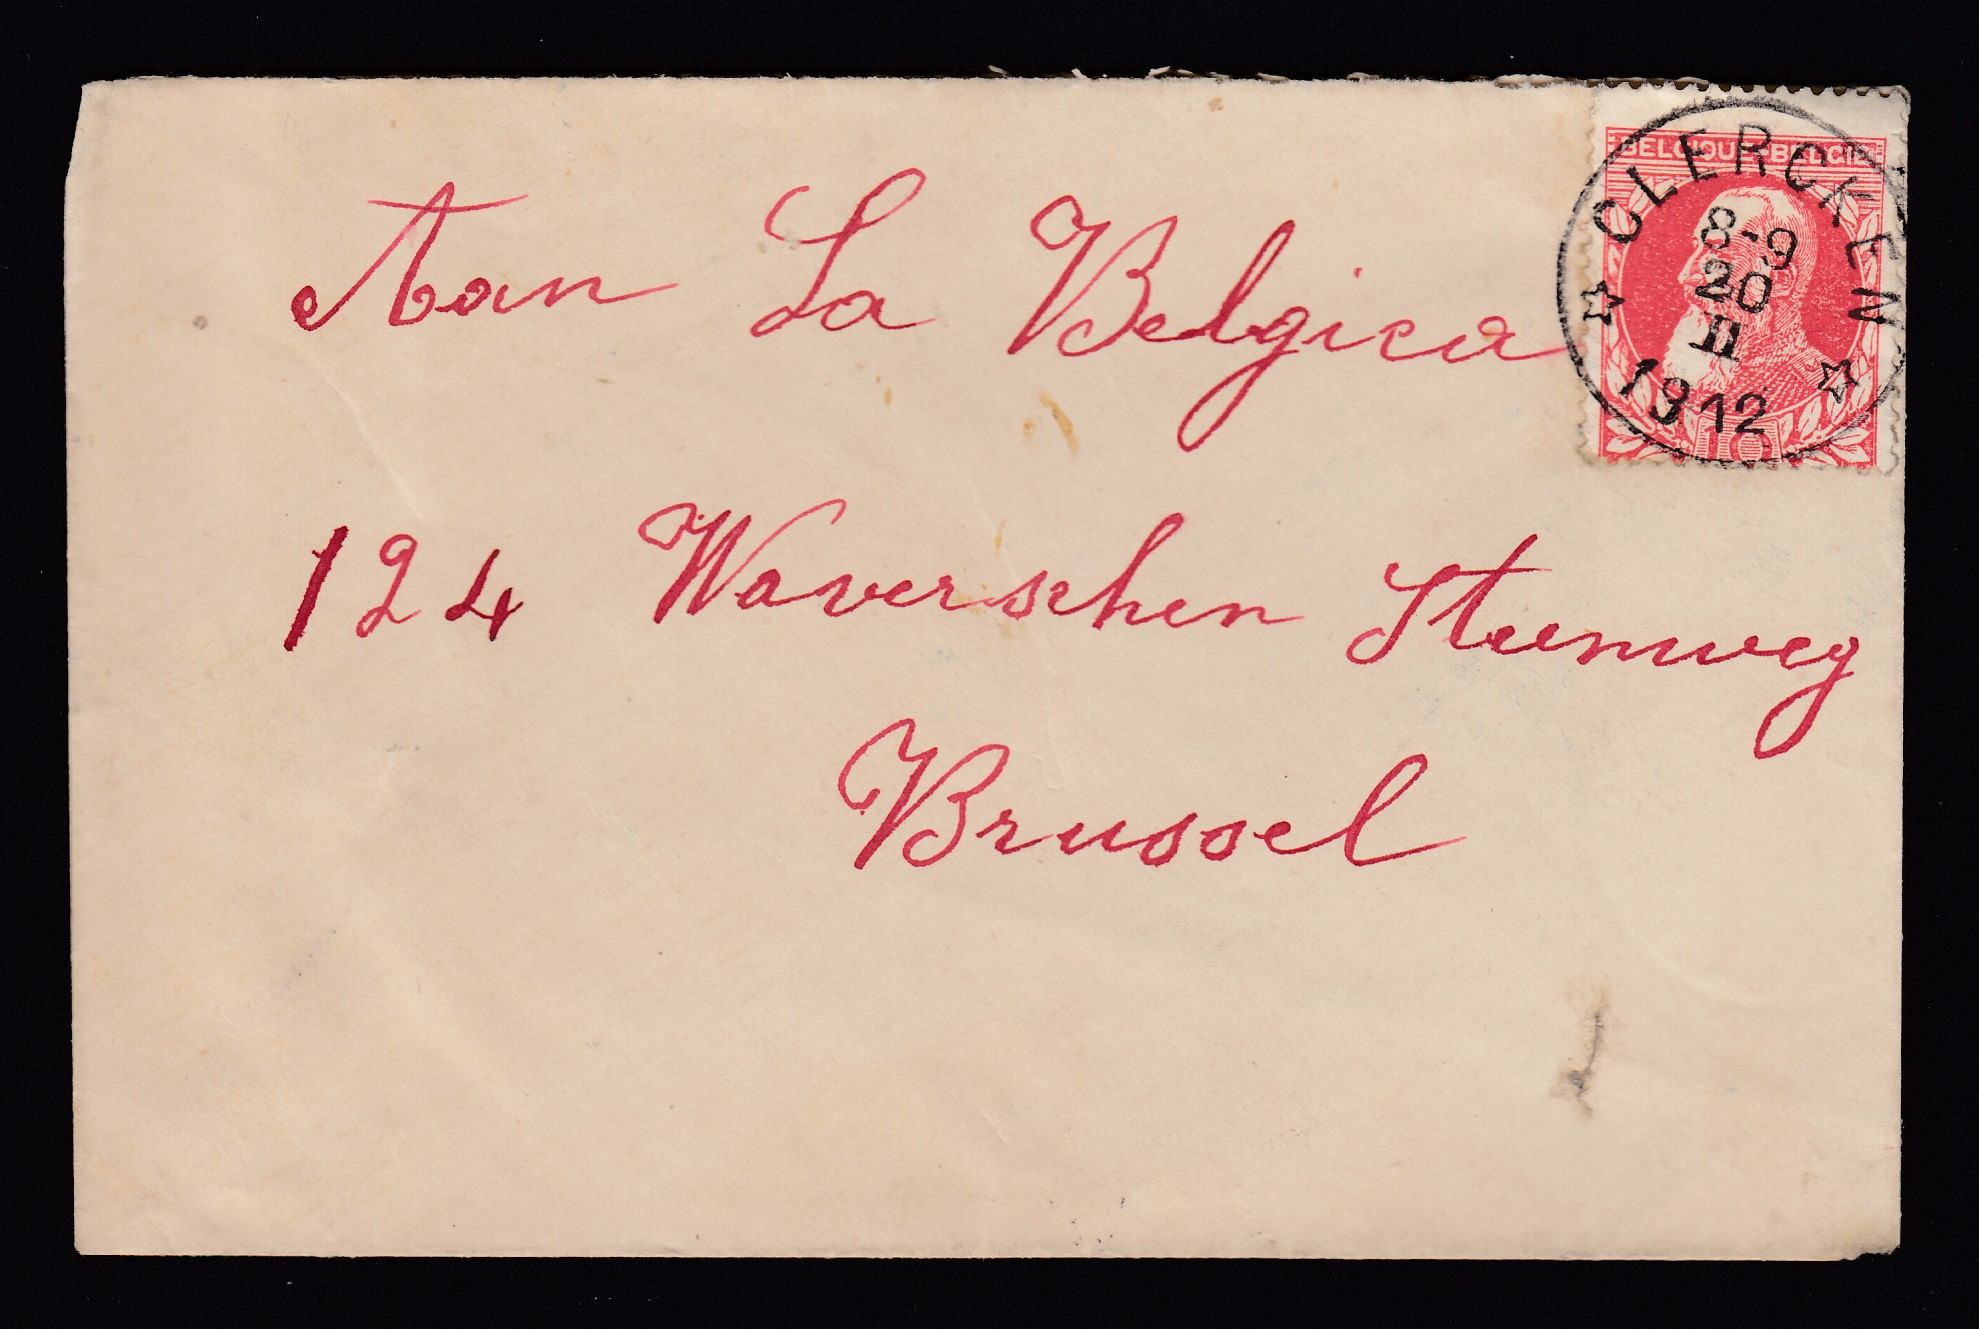 BELGIQUE-BELGIE
☆ CLERCKEN ☆
8-9
20
II
1912
10
Aan La Belgica
124 Waverschen Steenweg
Brussel